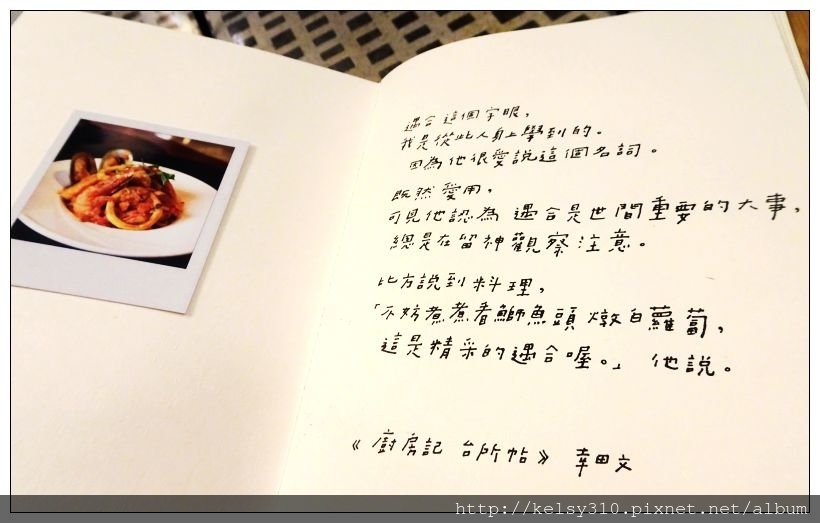 遇合這個字眼，
我是從此人身上學到的。
因為他很愛說這個名詞。
既然愛用，
可見他認為 遇合是世間重要的大事，
總是在留神觀察注意。
比方說到料理，
「不妨煮煮看鰤魚頭燉白蘿蔔，
這是精采的遇合喔。」 他說。
《廚房記 台所帖》 幸田文
http://kelsy310.pixnet.net/album